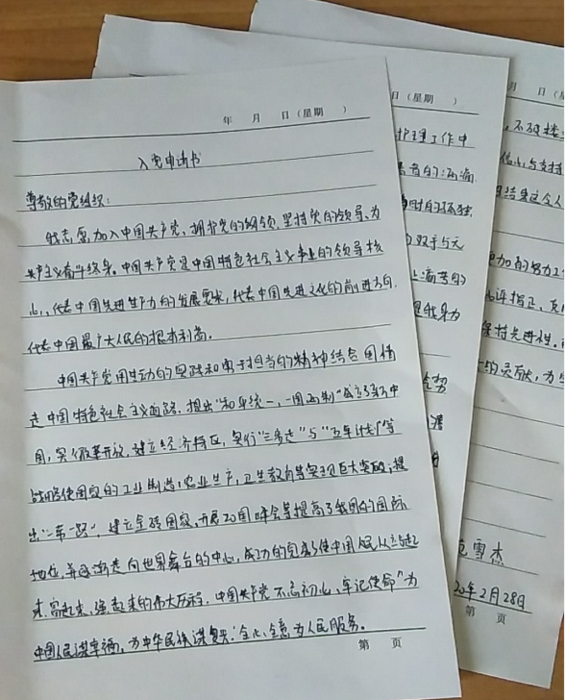 年 月 日(星期 )
入党申请书
尊敬的党组织:
我志愿加入中国共产党,拥护党的纲领,坚持党的领导,为
共产主义奋斗终身。中国共产党是中国特色社会主义事业的领导核
心,代表中国先进生产力的发展要求,代表中国先进文化的前进方向,
代表中国最广大人民的根本利益。
中国共产党用生动的实践和勇于担当的精神结合国情
走中国特色社会主义道路。提出“和平统一,一国两制”成立了新中
国,实行改革开放,建立经济特区,实行“三步走”与“五年计划”等
战略使国家的工业制造,农业生产,卫生教育等实现巨大突破,提
出“一带一路”,建立金砖国家,开展20国峰会等提高了我国的国际
地位,并逐渐走向世界舞台的中心,成功的完成了使中国人民从站起
来,富起来,强起来的伟大历程。中国共产党“不忘初心,牢记使命”为
中国人民谋幸福,为中华民族谋复兴,全心全意为人民服务。
第 页
日(星期 )
护理工作中
患者的
双手与元
月 日
不
心与支持
结束这个人
加的努力工
评指正,
保持先进性。
的灵献,为
雪杰
年2月28日
第 页